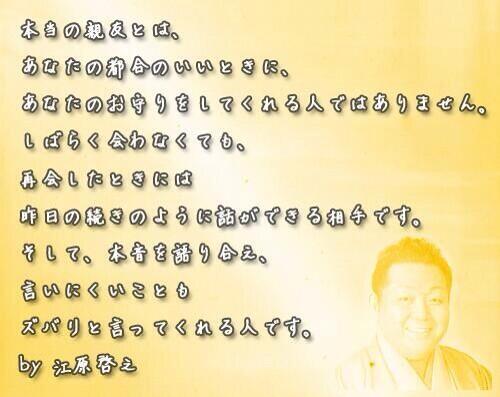 本当の親友とは、
あなたの都合のいいときに、
あなたのお守りをしてくれる人ではありません。
しばらく会わなくても、
再会したときには
昨日の続きのように話ができる相手です。
そして、本音を語り合え、
言いにくいことも
ズバリと言ってくれる人です。
by 江原啓之